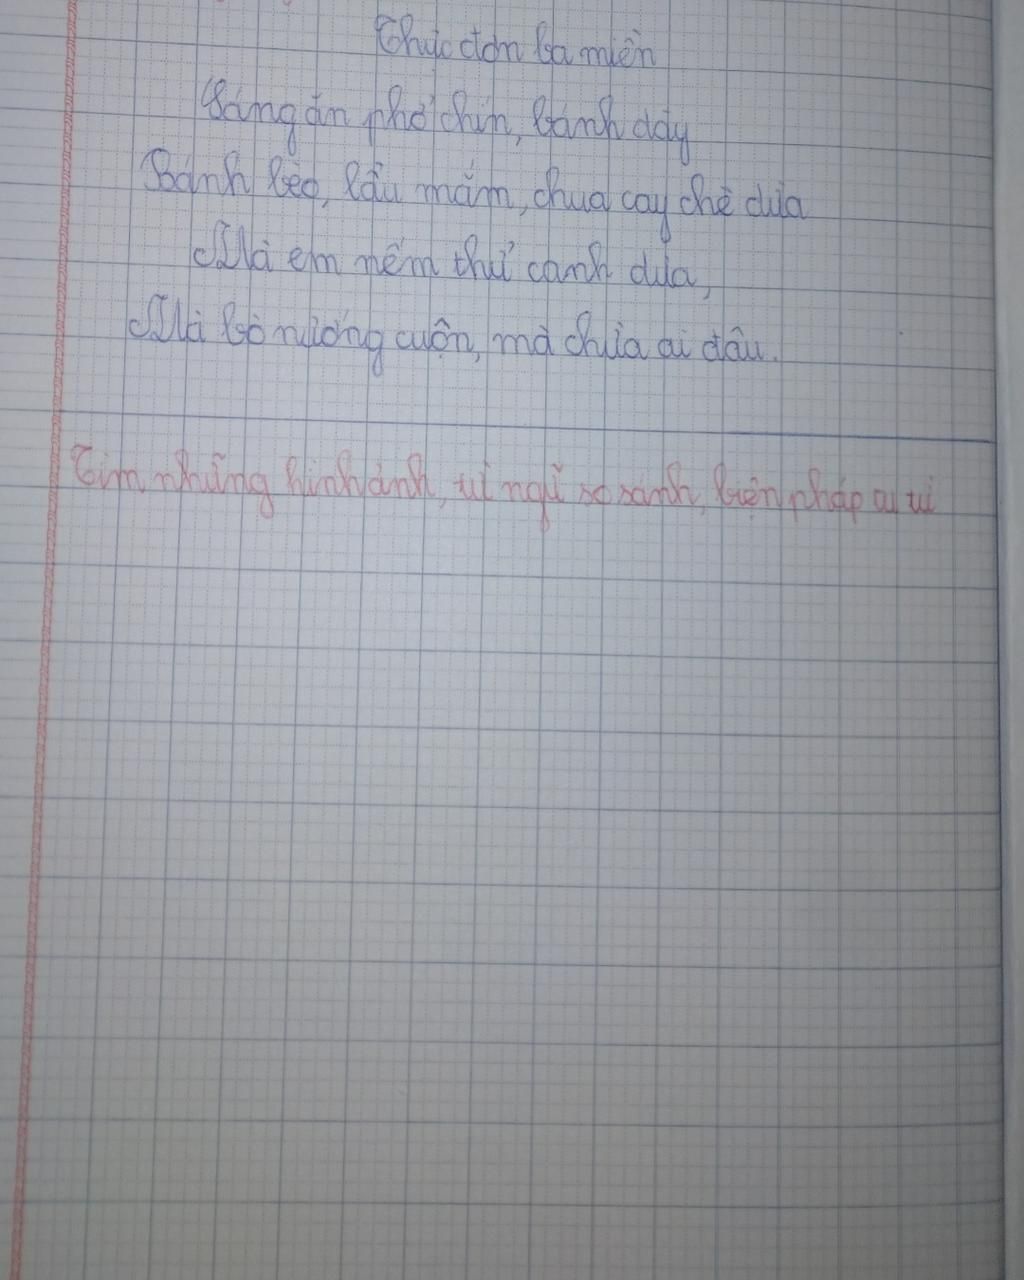 Thực đơn ba miền
Sáng ăn phở chín, bánh dày
Bánh bèo, lẩu mắm, chua cay chè dừa
Mà em nếm thử canh dưa,
Mà bò nướng cuộn, mà chừa ai đâu.
Tìm những hình ảnh, từ ngữ so sánh, biện pháp tu từ